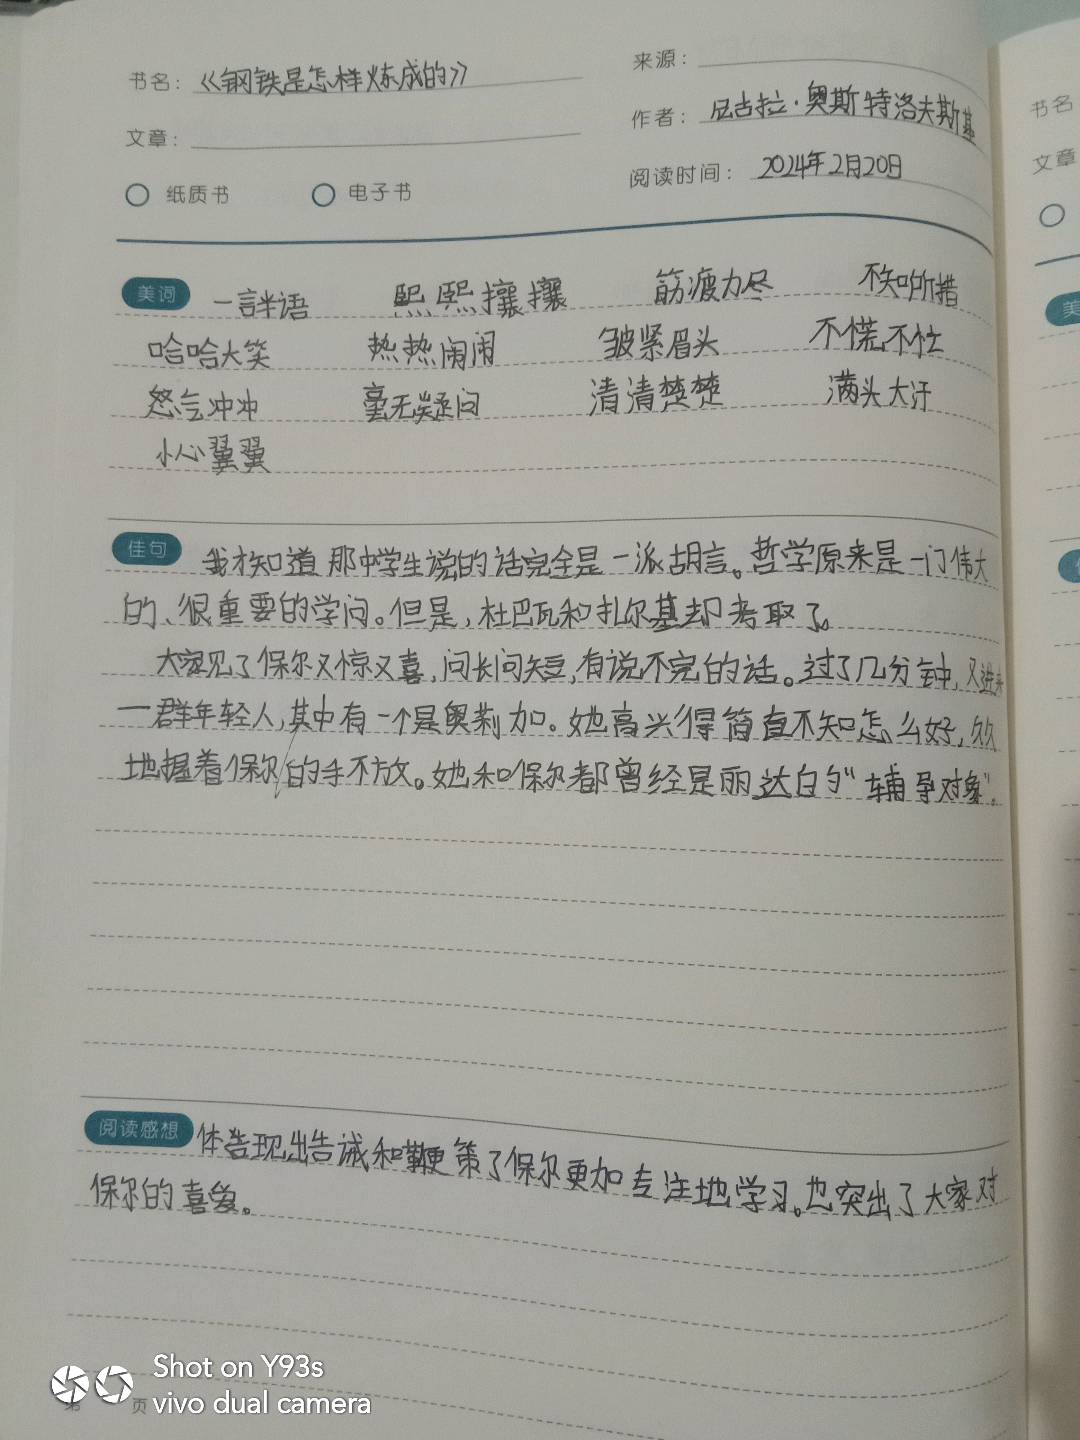 书名：《钢铁是怎样炼成的》
来源：
文章：
作者：尼古拉·奥斯特洛夫斯基
纸质书 电子书
阅读时间：2024年2月20日
美词 一言半语 熙熙攘攘 筋疲力尽 不知所措
哈哈大笑 热热闹闹 皱紧眉头 不慌不忙
怒气冲冲 毫无疑问 清清楚楚 满头大汗
小心翼翼
佳句 我才知道那中学生说的话完全是一派胡言。哲学原来是一门伟大
的、很重要的学问。但是，杜巴瓦和扎尔基却考取了。
大家见了保尔又惊又喜，问长问短，有说不完的话。过了几分钟，又进来
一群年轻人，其中有一个是奥莉加。她高兴得简直不知怎么好，久久
地握着保尔的手不放。她和保尔都曾经是丽达的“辅导对象”。
阅读感想 体告现出告诫和鞭策了保尔更加专注地学习。也突出了大家对
保尔的喜爱。
第 页
书名
文章
美
Shot on Y93s
vivo dual camera